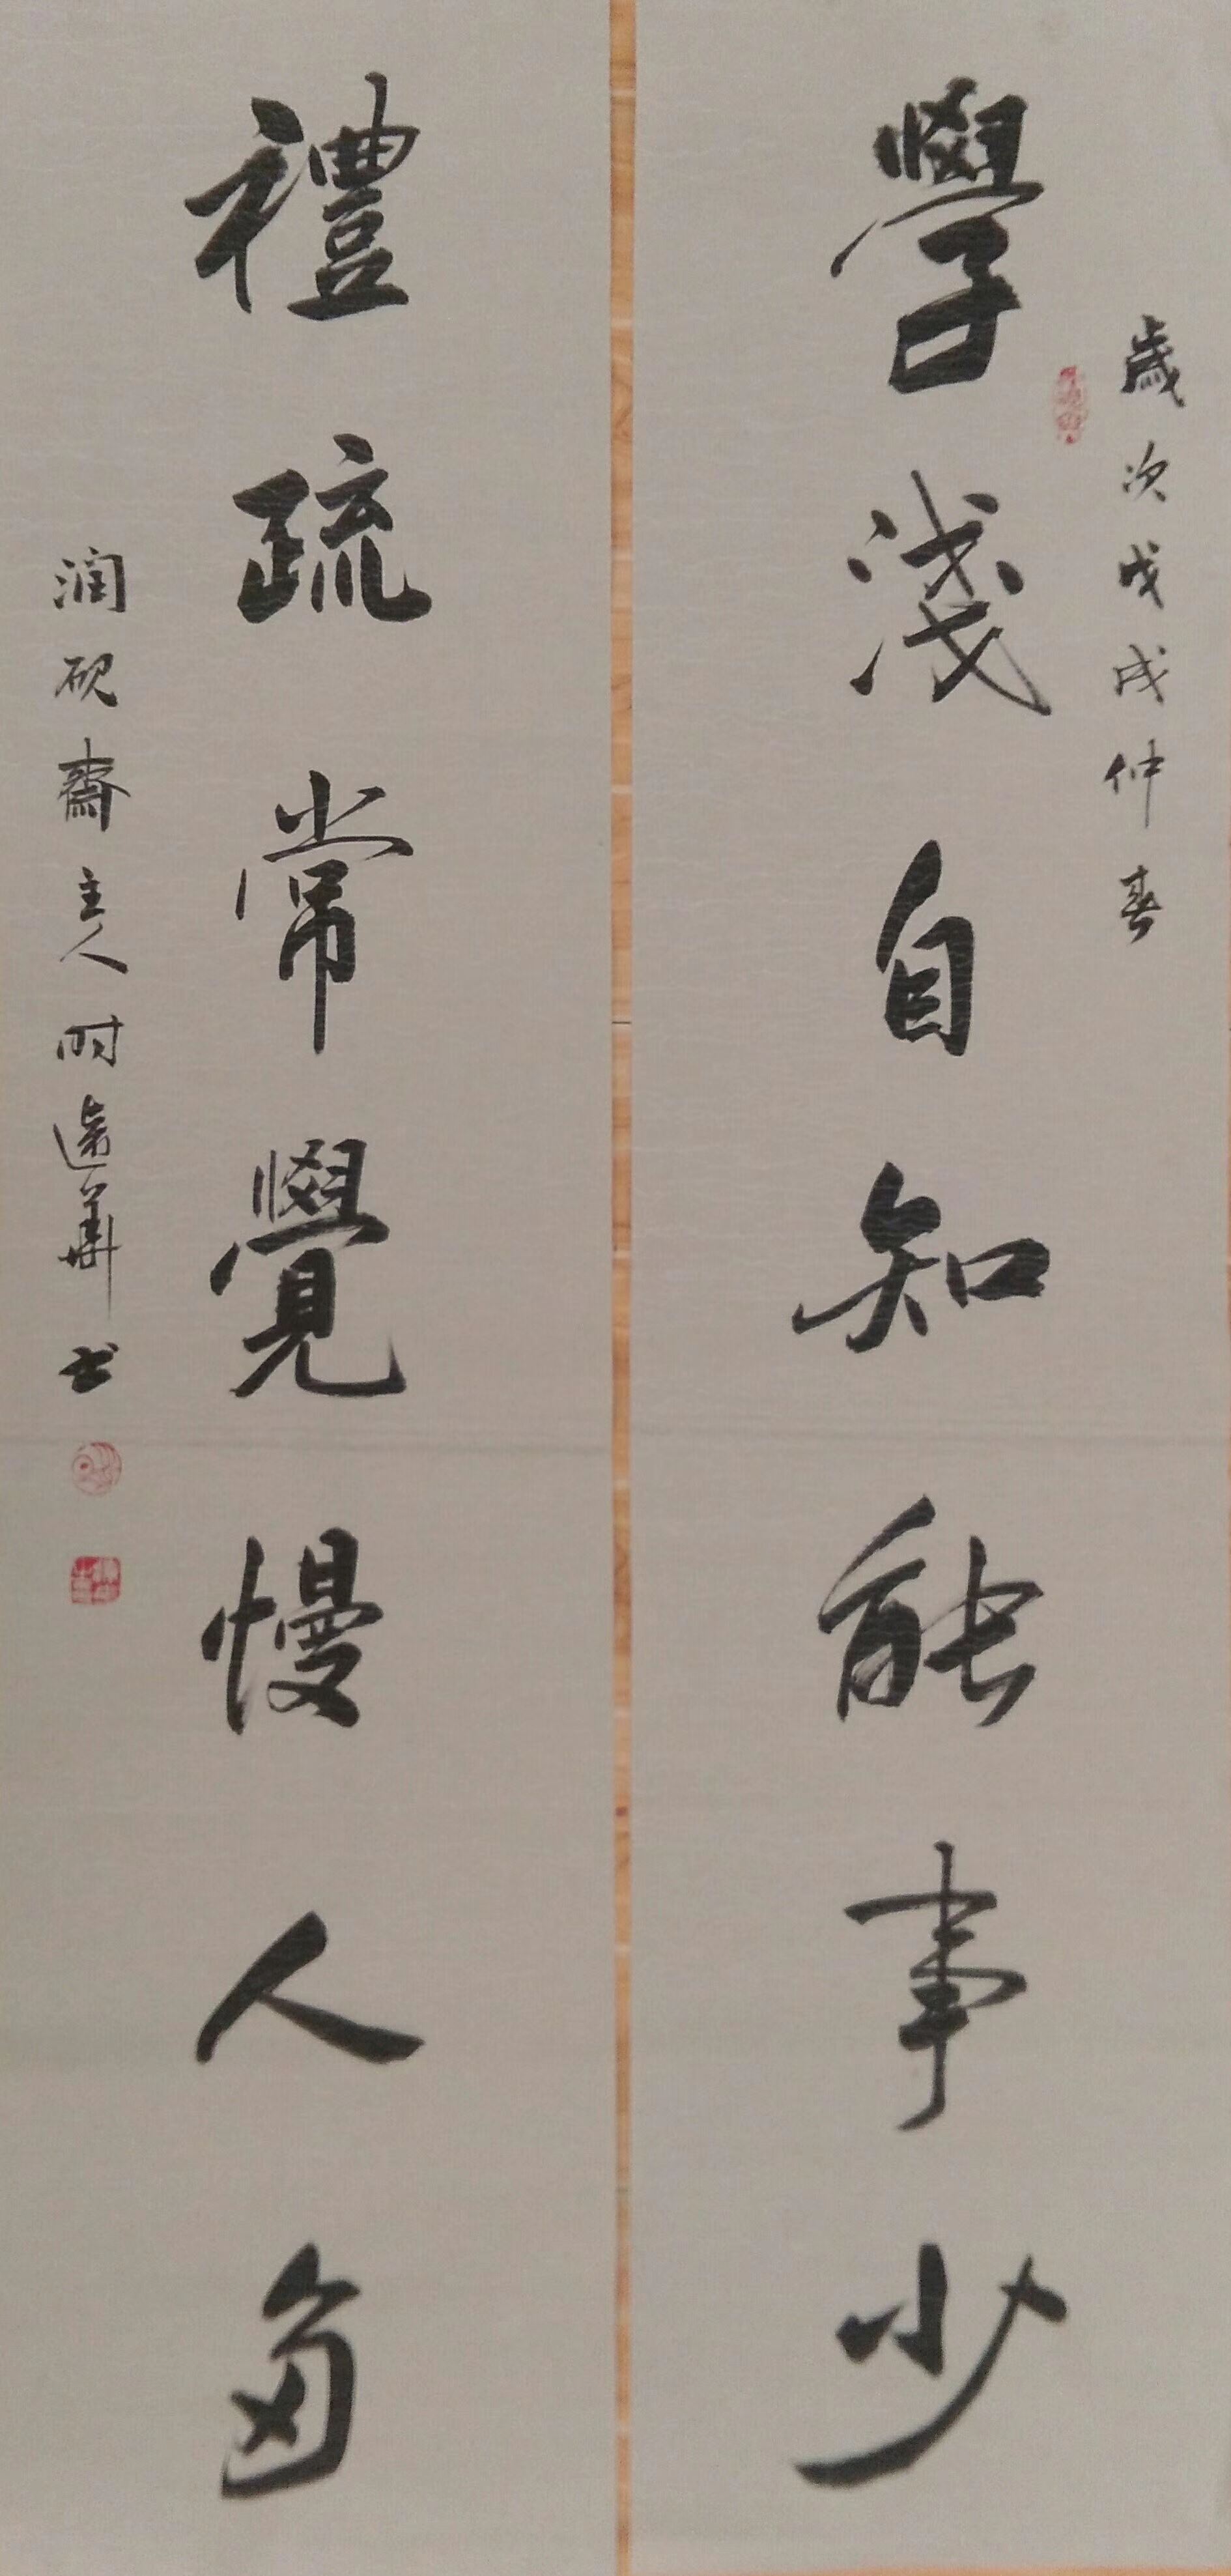 歲次戊戌仲春
學淺自知能事少
禮疏常覺慢人多
润砚齋主人时遠華书